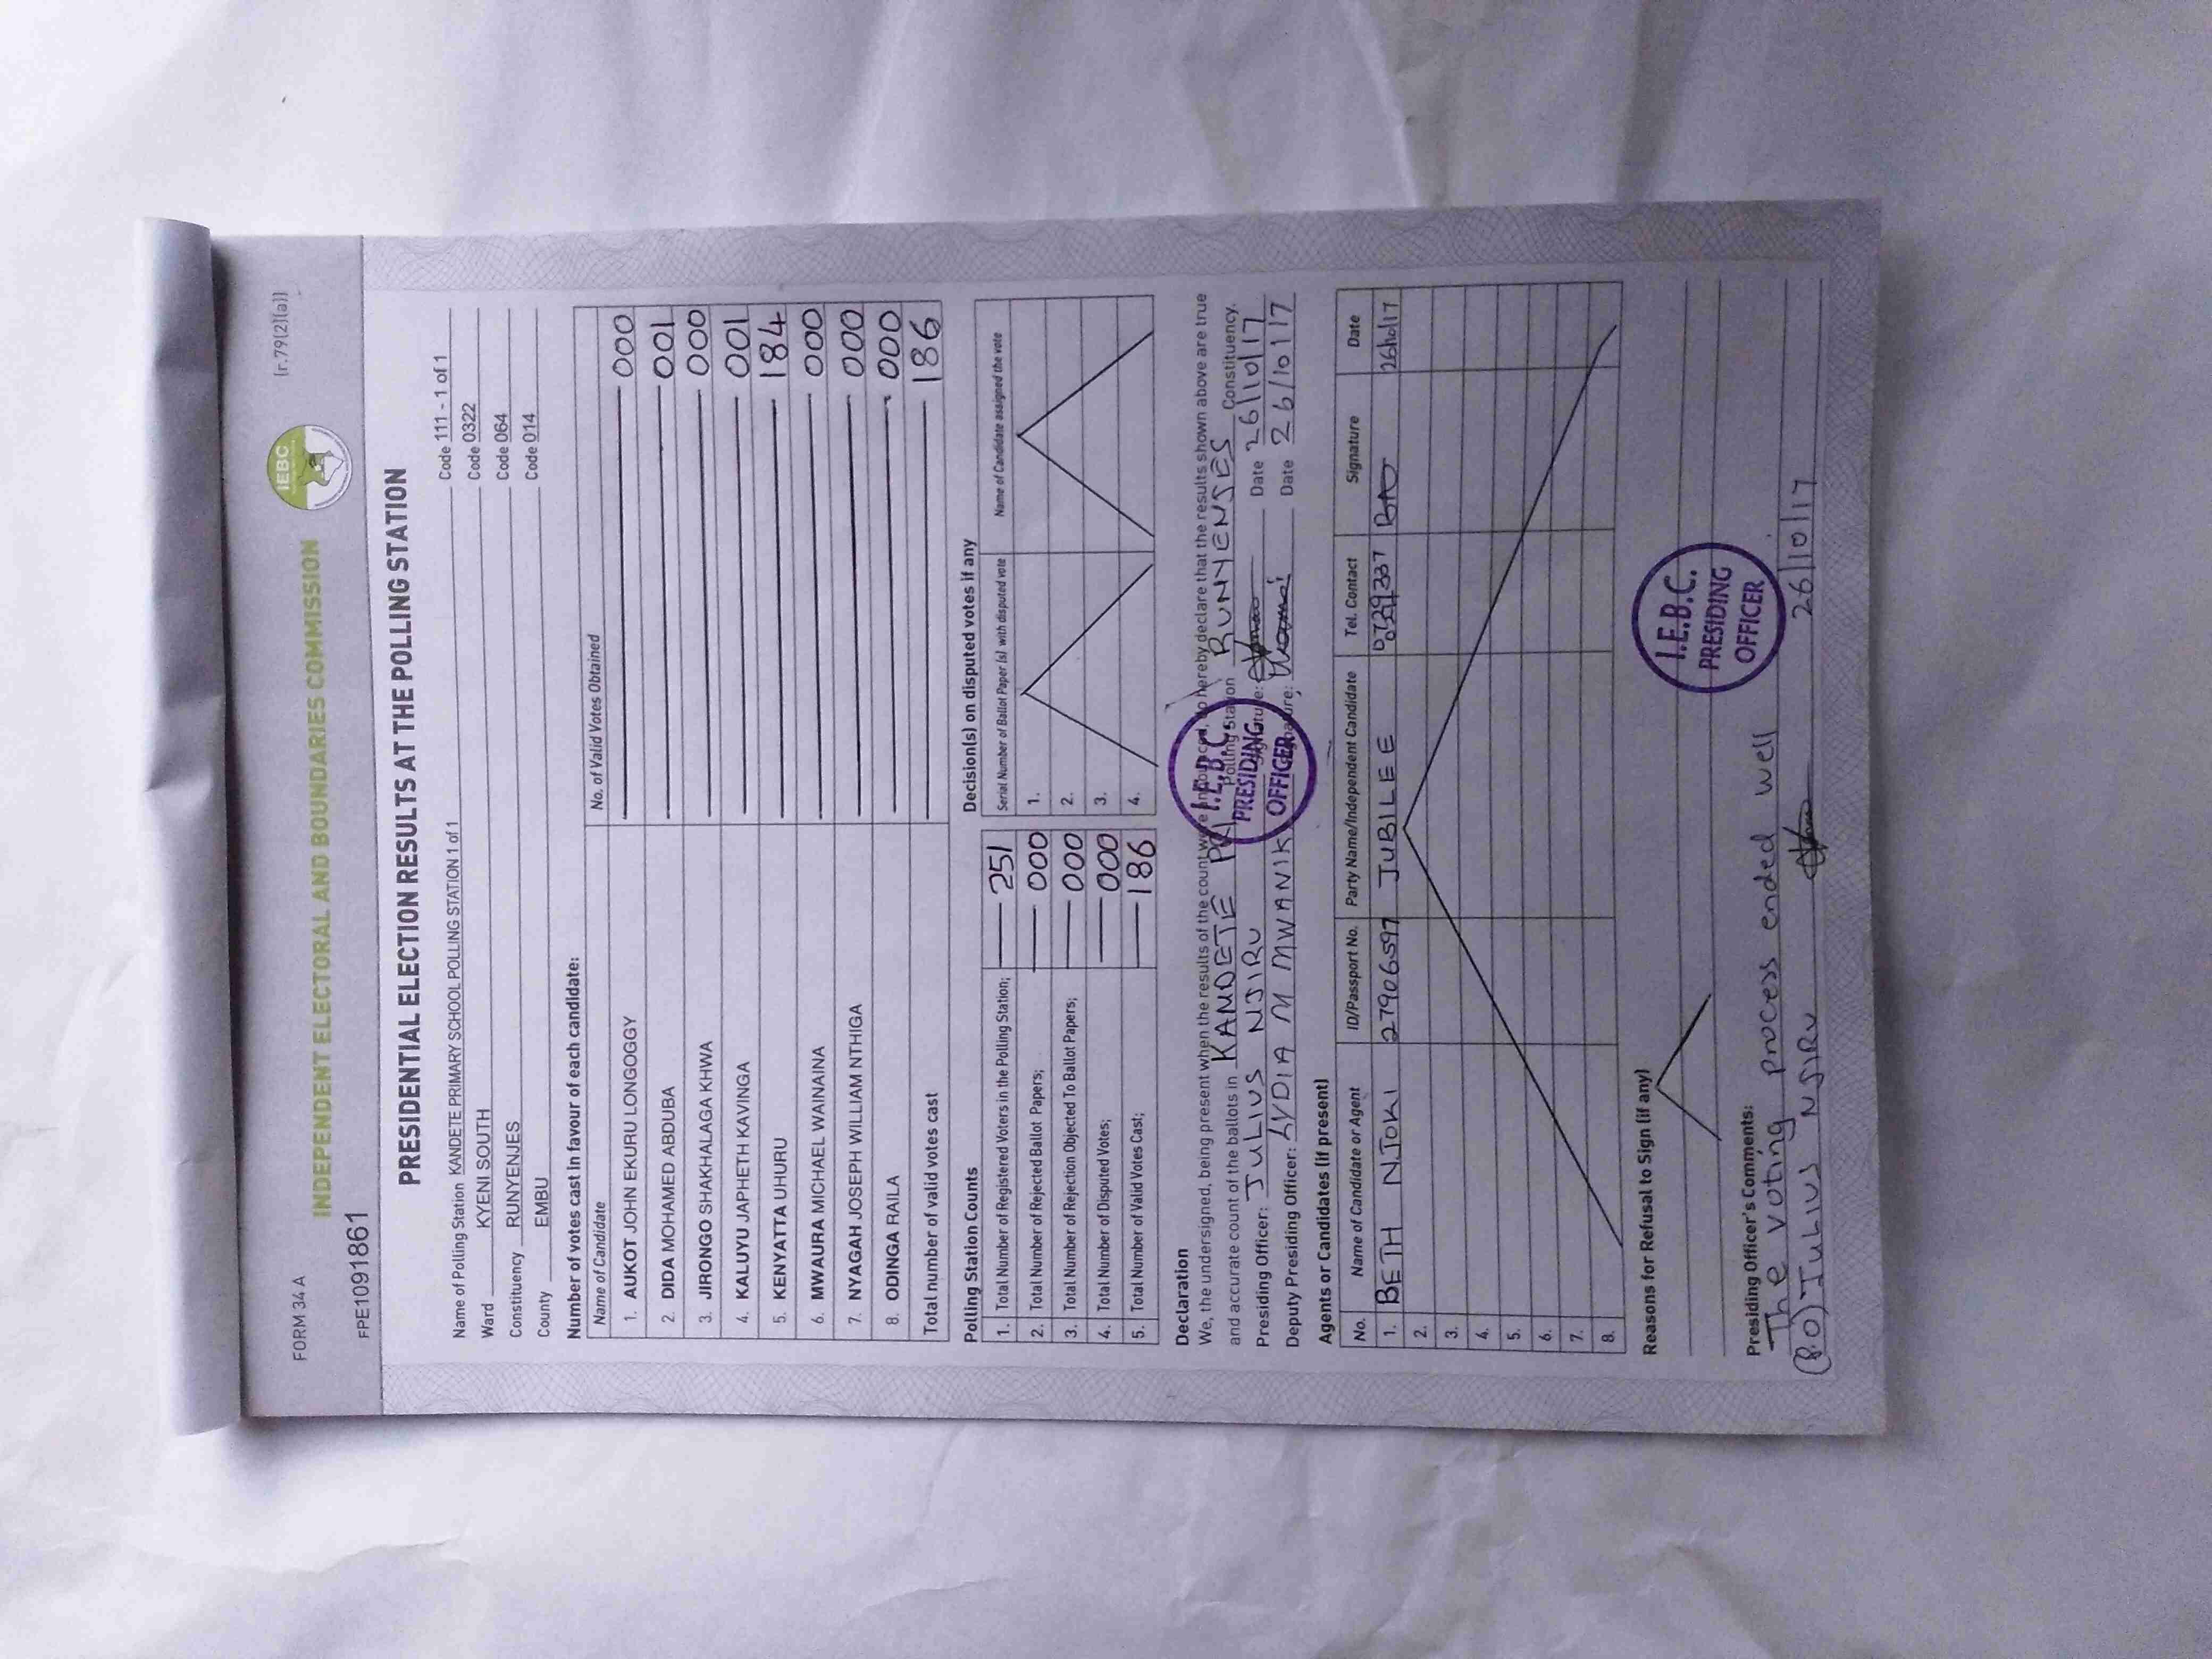 FORM 34 A
[r.79(2)(a)]
IEBC
INDEPENDENT ELECTORAL AND BOUNDARIES COMMISSION
FPE1091861
PRESIDENTIAL ELECTION RESULTS AT THE POLLING STATION
Name of Polling Station KANDETE PRIMARY SCHOOL POLLING STATION 1 of 1 Code 111 - 1 of 1
Ward KYENI SOUTH Code 0322
Constituency RUNYENJES Code 064
County EMBU Code 014
Number of votes cast in favour of each candidate:
Name of Candidate No. of Valid Votes Obtained
1. AUKOT JOHN EKURU LONGOGGY 000
2. DIDA MOHAMED ABDUBA 001
3. JIRONGO SHAKHALAGA KHWA 000
4. KALUYU JAPHETH KAVINGA 001
5. KENYATTA UHURU 184
6. MWAURA MICHAEL WAINAINA 000
7. NYAGAH JOSEPH WILLIAM NTHIGA 000
8. ODINGA RAILA 000
Total number of valid votes cast 186
Polling Station Counts
1. Total Number of Registered Voters in the Polling Station; 251
2. Total Number of Rejected Ballot Papers; 000
3. Total Number of Rejection Objected To Ballot Papers; 000
4. Total Number of Disputed Votes; 000
5. Total Number of Valid Votes Cast; 186
Decision(s) on disputed votes if any
Serial Number of Ballot Paper (s) with disputed vote Name of Candidate assigned the vote
1.
2.
3.
4.
Declaration
We, the undersigned, being present when the results of the count were announced, do hereby declare that the results shown above are true
and accurate count of the ballots in KANDETE PRI Polling Station RUNYENSES Constituency.
Presiding Officer: JULIUS NJIRU Signature: Date 26/10/17
Deputy Presiding Officer: LYDIA M MWANIKI Signature: Date 26/10/17
I.E.B.C.
PRESIDING
OFFICER
Agents or Candidates (if present)
No. Name of Candidate or Agent ID/Passport No. Party Name/Independent Candidate Tel. Contact Signature Date
1. BETH NJOKI 27906597 JUBILEE 26/10/17
2.
3.
4.
5.
6.
7.
8.
Reasons for Refusal to Sign (if any)
I.E.B.C.
PRESIDING
OFFICER
Presiding Officer's Comments:
The voting process ended well
(P.O) JULIUS NJIRU 26/10/17